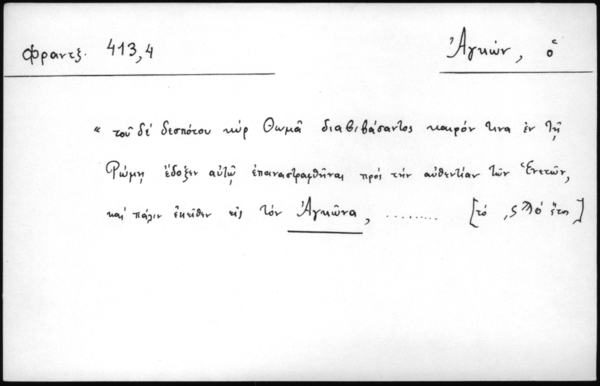 Φραντζ. 413,4
Ἀγκών, ὁ
« τοῦ δέ δεσπότου κύρ Θωμᾶ διαβιβάσαντος καιρόν τινα ἐν τῇ
Ρώμῃ ἔδοξεν αὐτῷ ἐπαναστραφῆναι πρός τήν αὐθεντίαν τῶν Ἑνετῶν,
καί πάλιν ἐκεῖθεν εἰς τόν Ἀγκῶνα, ......... [τό ἔτος]